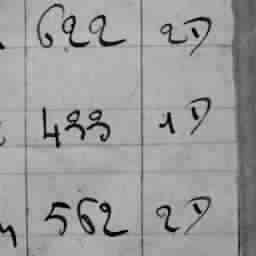 622 2D
433 1D
562 2D